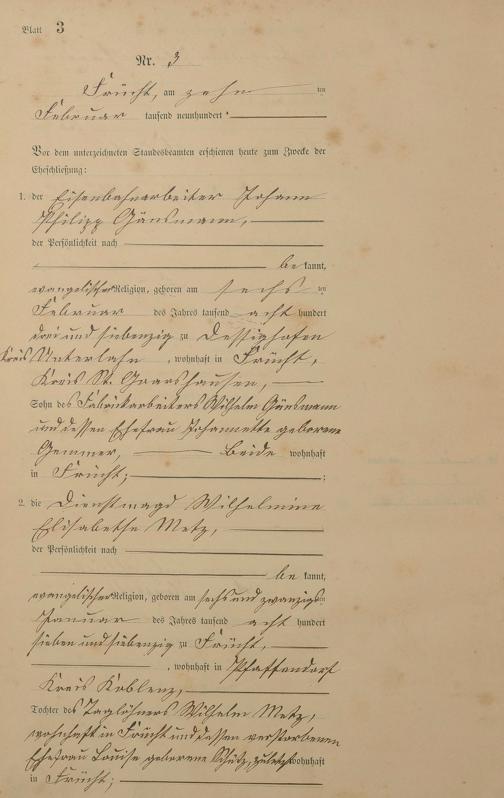 Blatt 3
Nr. 3
Frücht, am zehn ten
Februar tausend neunhundert
Vor dem unterzeichneten Standesbeamten erschienen heute zum Zwecke der
Eheschließung:
1. der Eisenbahnarbeiter Johann
Philipp Gänsmann,
der Persönlichkeit nach
be kannt,
evangelischer Religion, geboren am sechs ten
Februar des Jahres tausend acht hundert
drei und siebenzig zu Dessighofen
Kreis Unterlahn, wohnhaft in Frücht,
Kreis St. Goarshausen,
Sohn des Fabrikarbeiters Wilhelm Gänsmann
und dessen Ehefrau Johannette geborene
Gemmer, Beide wohnhaft
in Frücht;
2. die Dienstmagd Wilhelmine
Elisabethe Metz,
der Persönlichkeit nach
be kannt,
evangelischer Religion, geboren am sechs und zwanzigsten
Januar des Jahres tausend acht hundert
sieben und siebenzig zu Frücht,
, wohnhaft in Pfaffendorf
Kreis Koblenz,
Tochter des Taglöhners Wilhelm Metz,
wohnhaft in Frücht und dessen verstorbenen
Ehefrau Louise geborene Schütz, zuletzt wohnhaft
in Frücht;